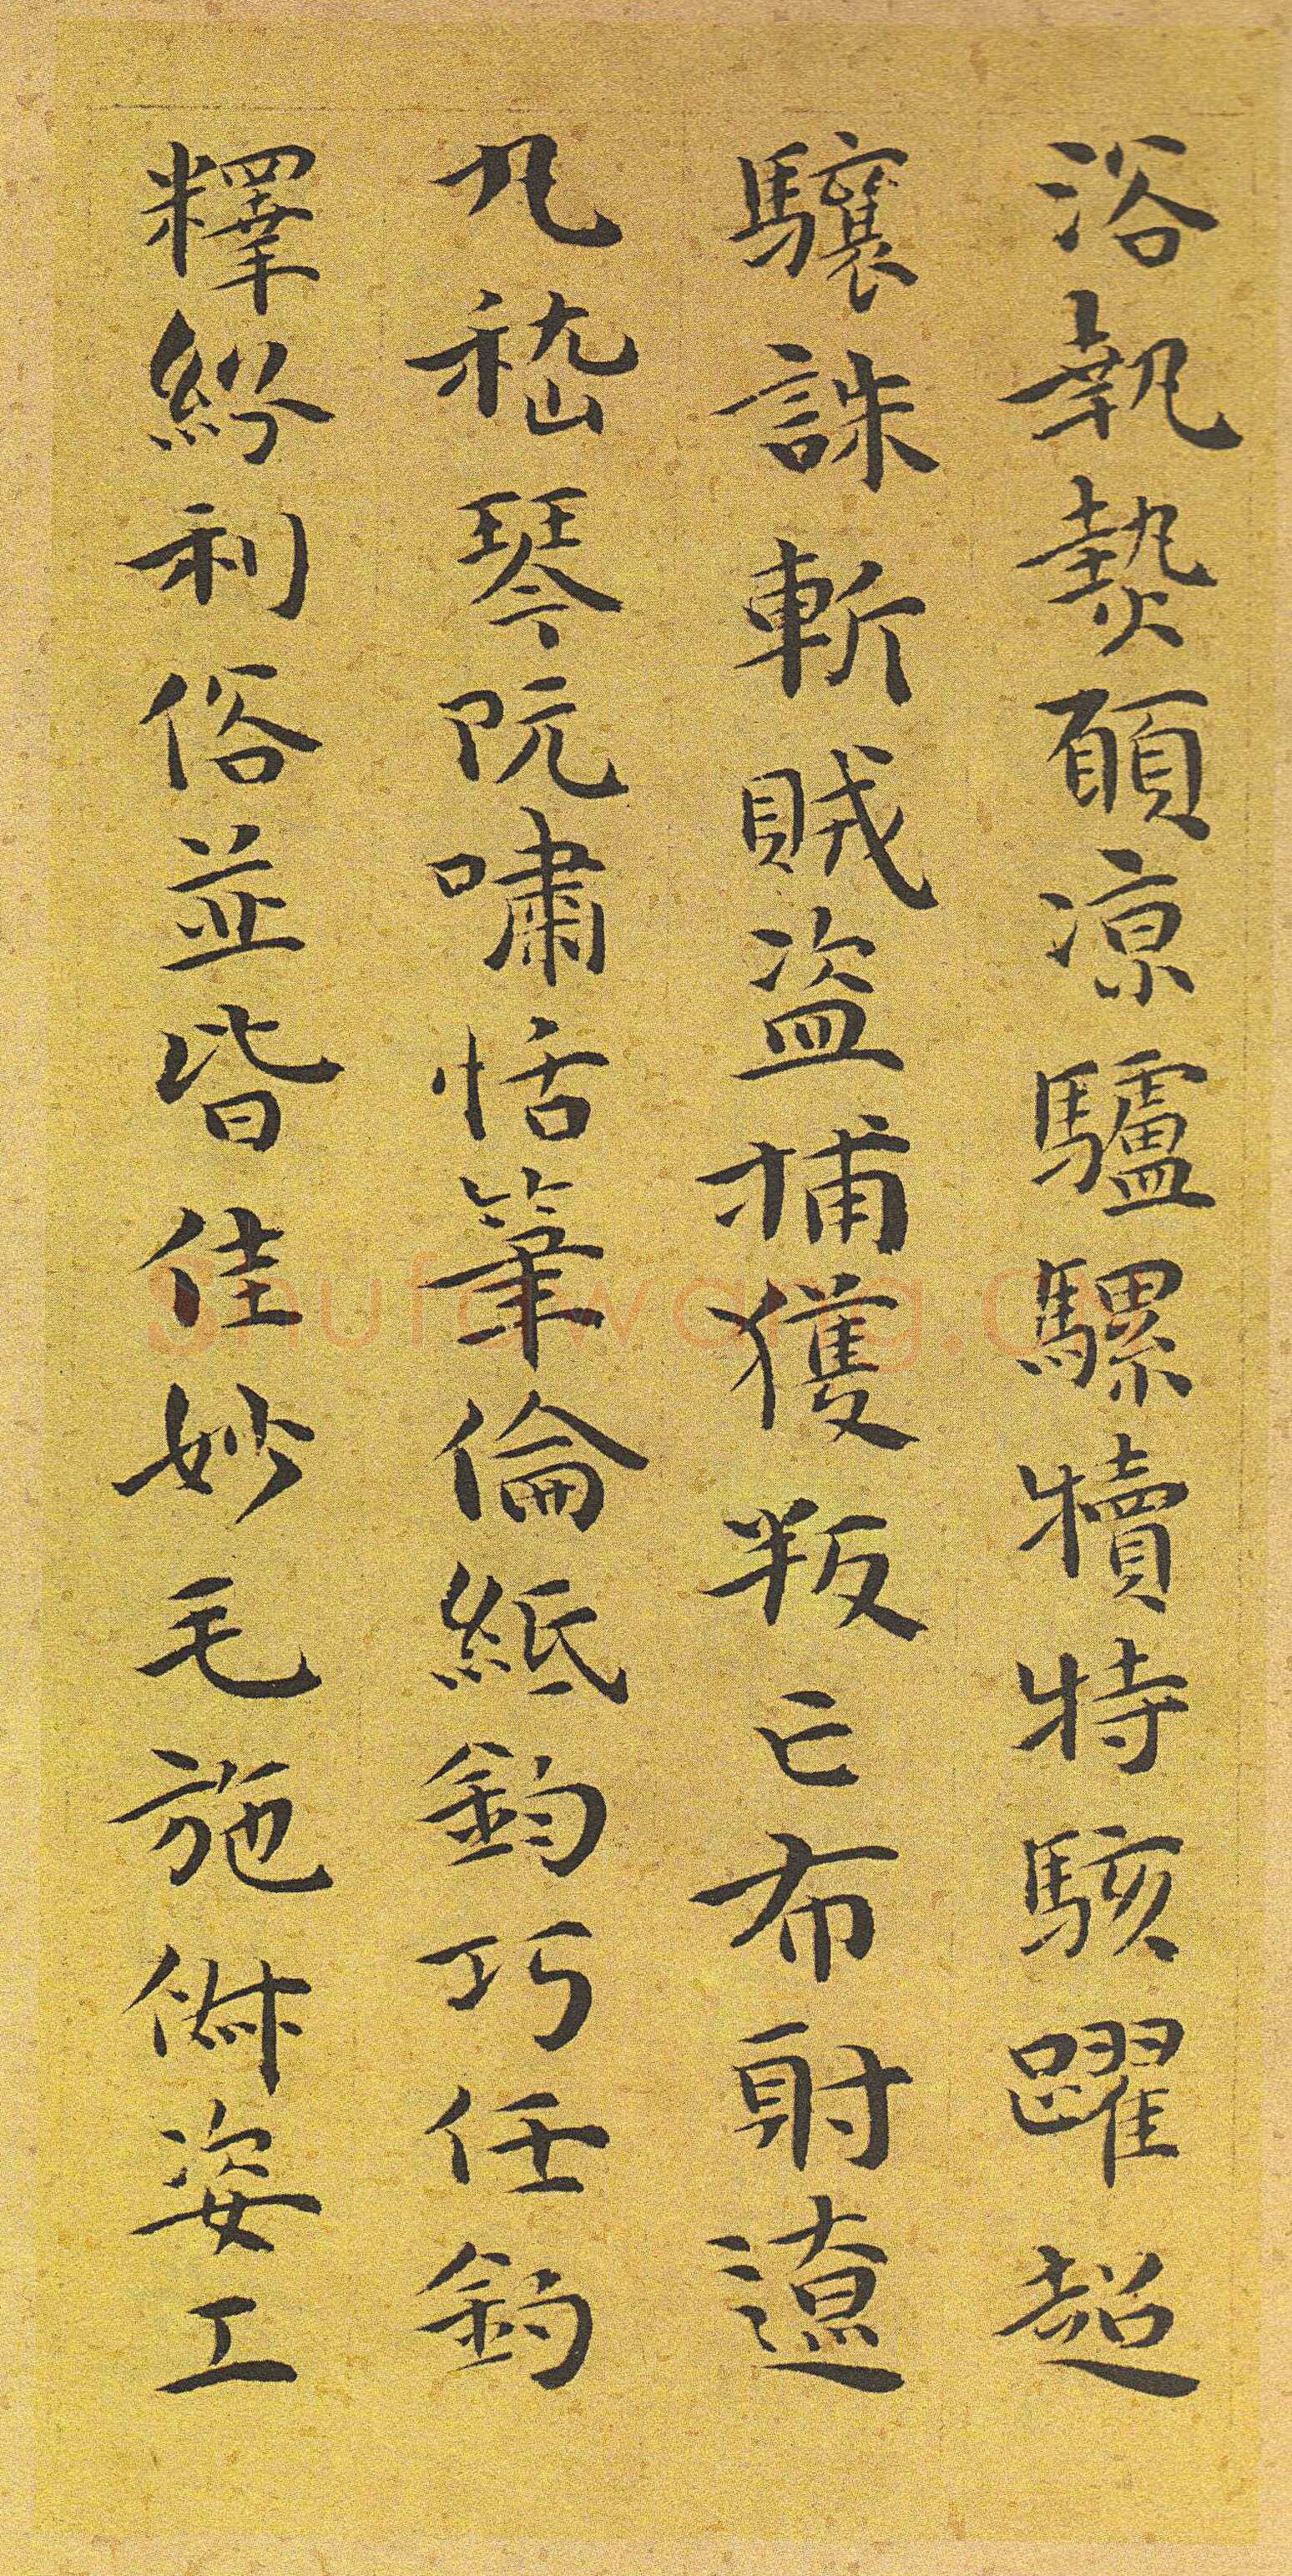 浴執熱願涼驢騾犢特駭躍超
驤誅斬賊盗捕獲叛亡布射遼
丸嵇琴阮嘯恬筆倫紙鈞巧任釣
釋紛利俗並皆佳妙毛施俶姿工
Shufawang.c